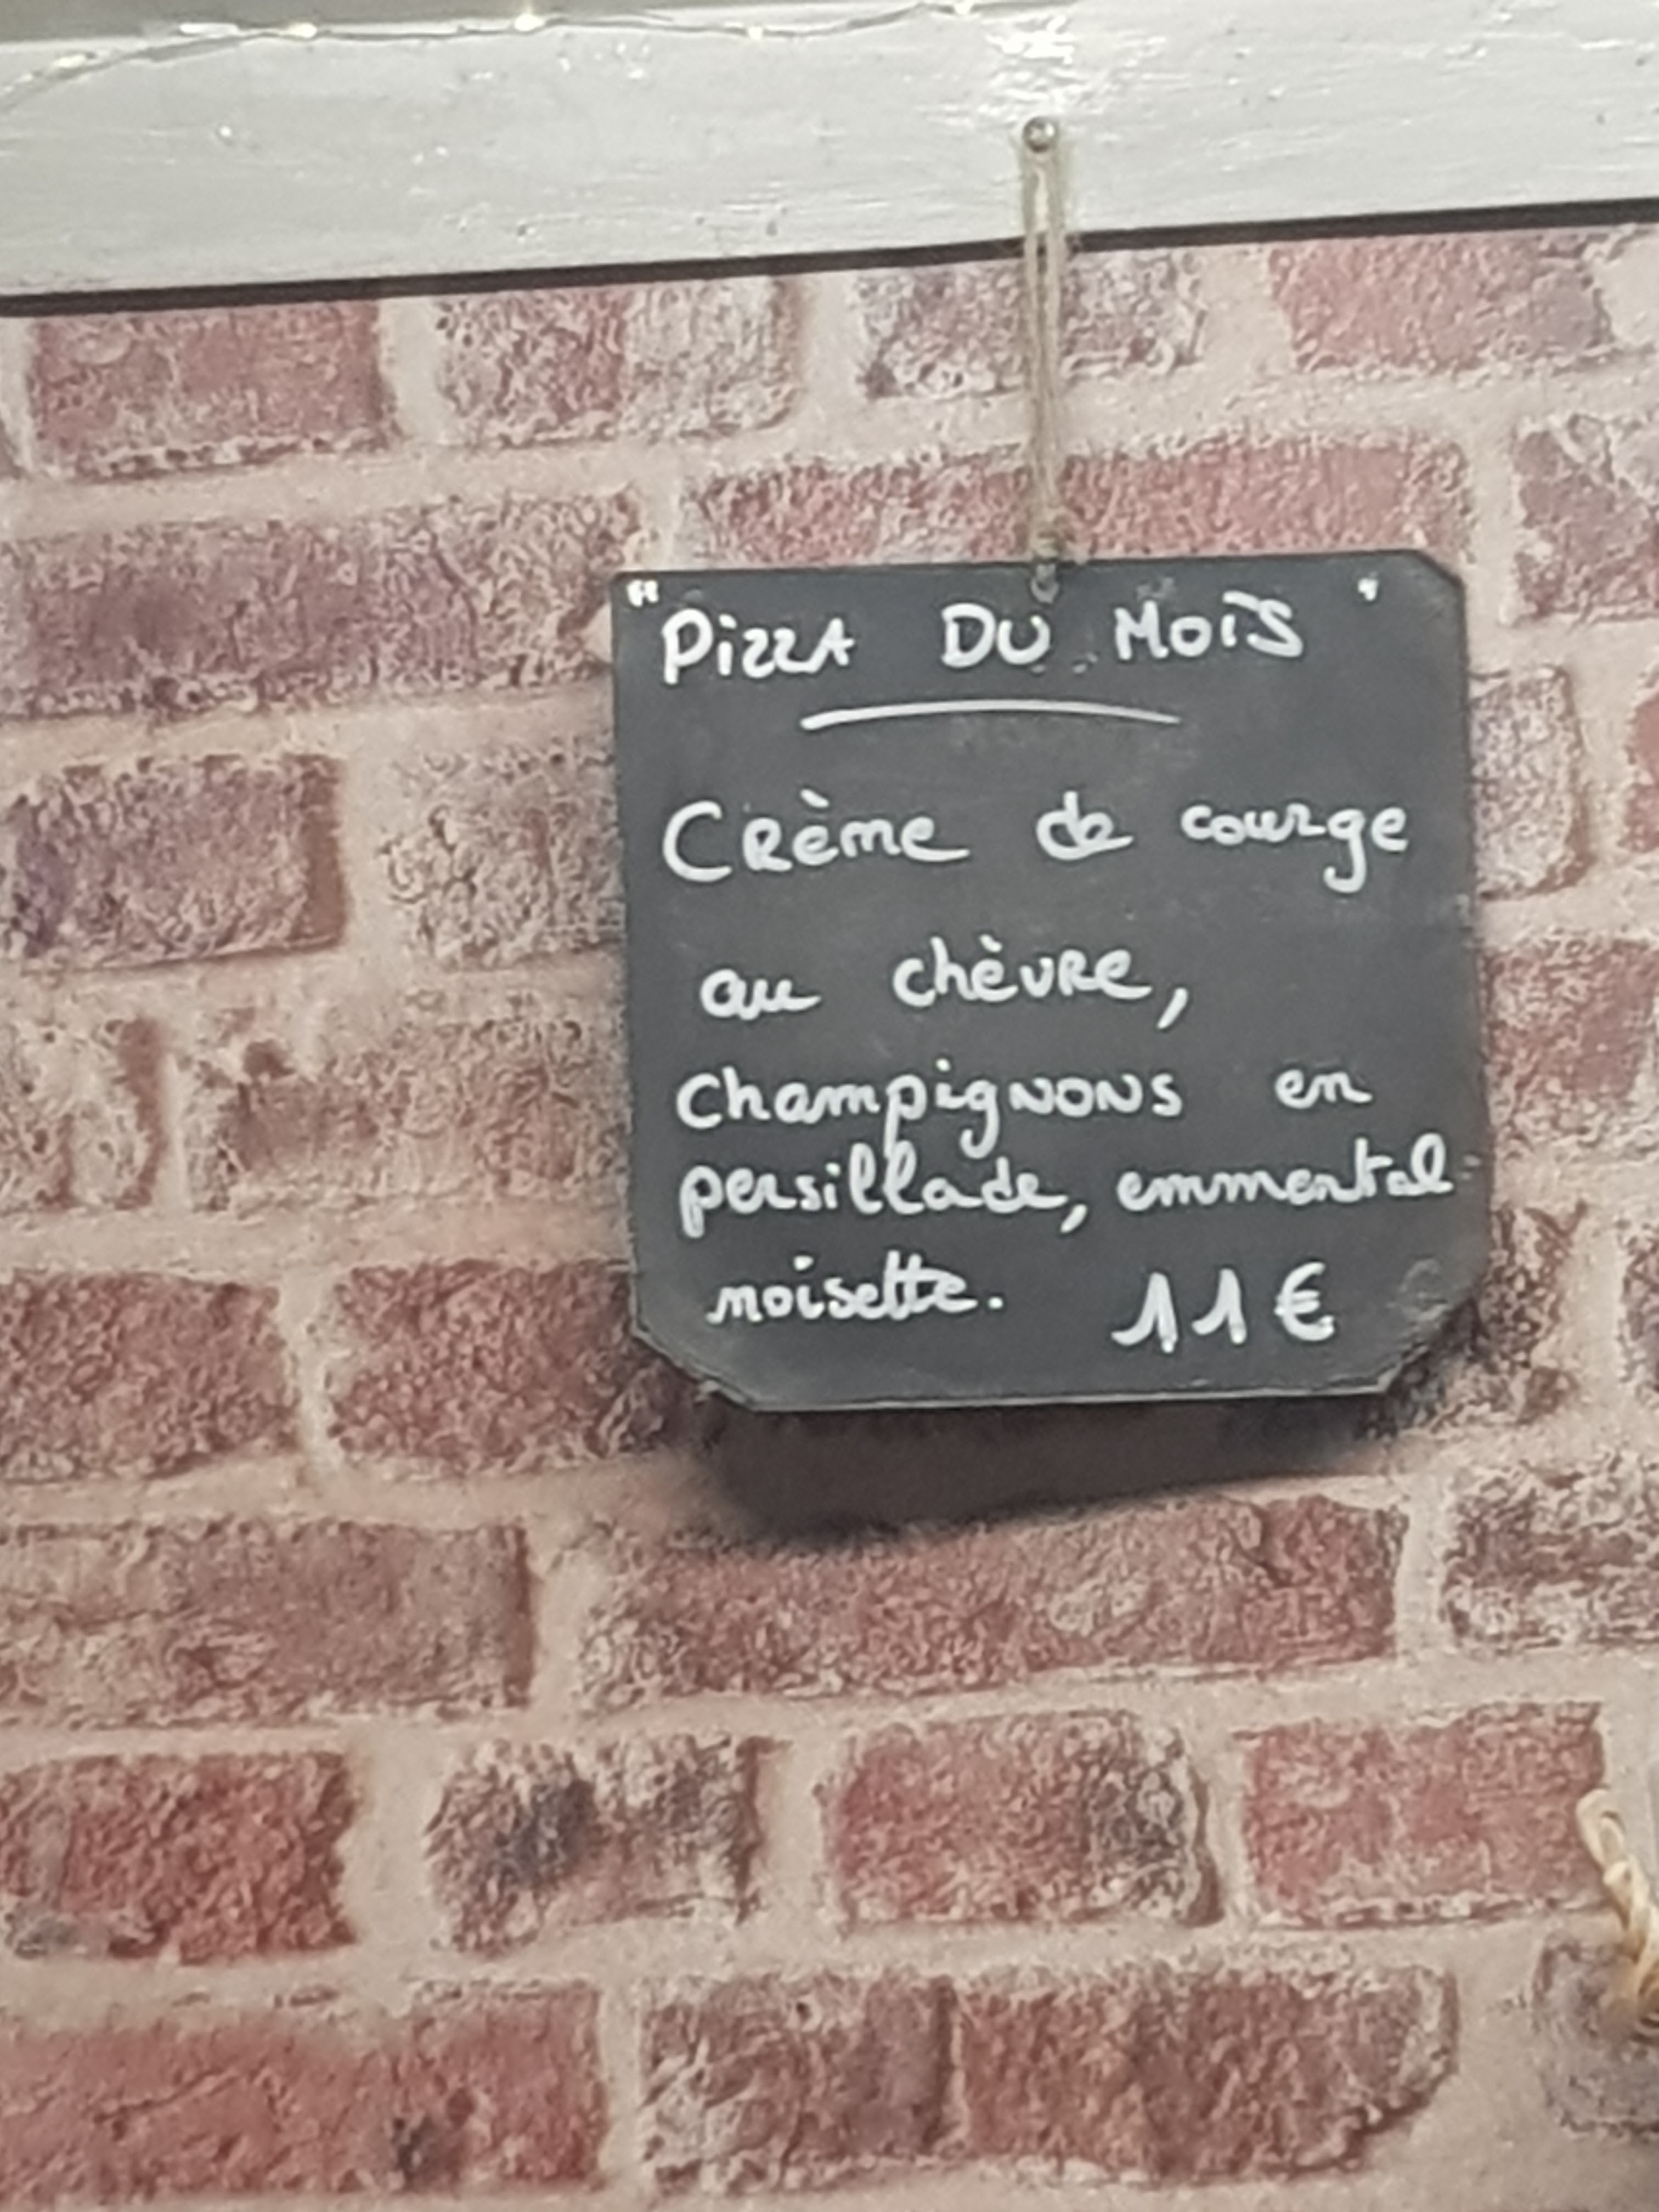 "PizzA DU MOiS"
CRème de courge
au chèvRe,
champigNONS en
persillade, emmental
noisette. 11€